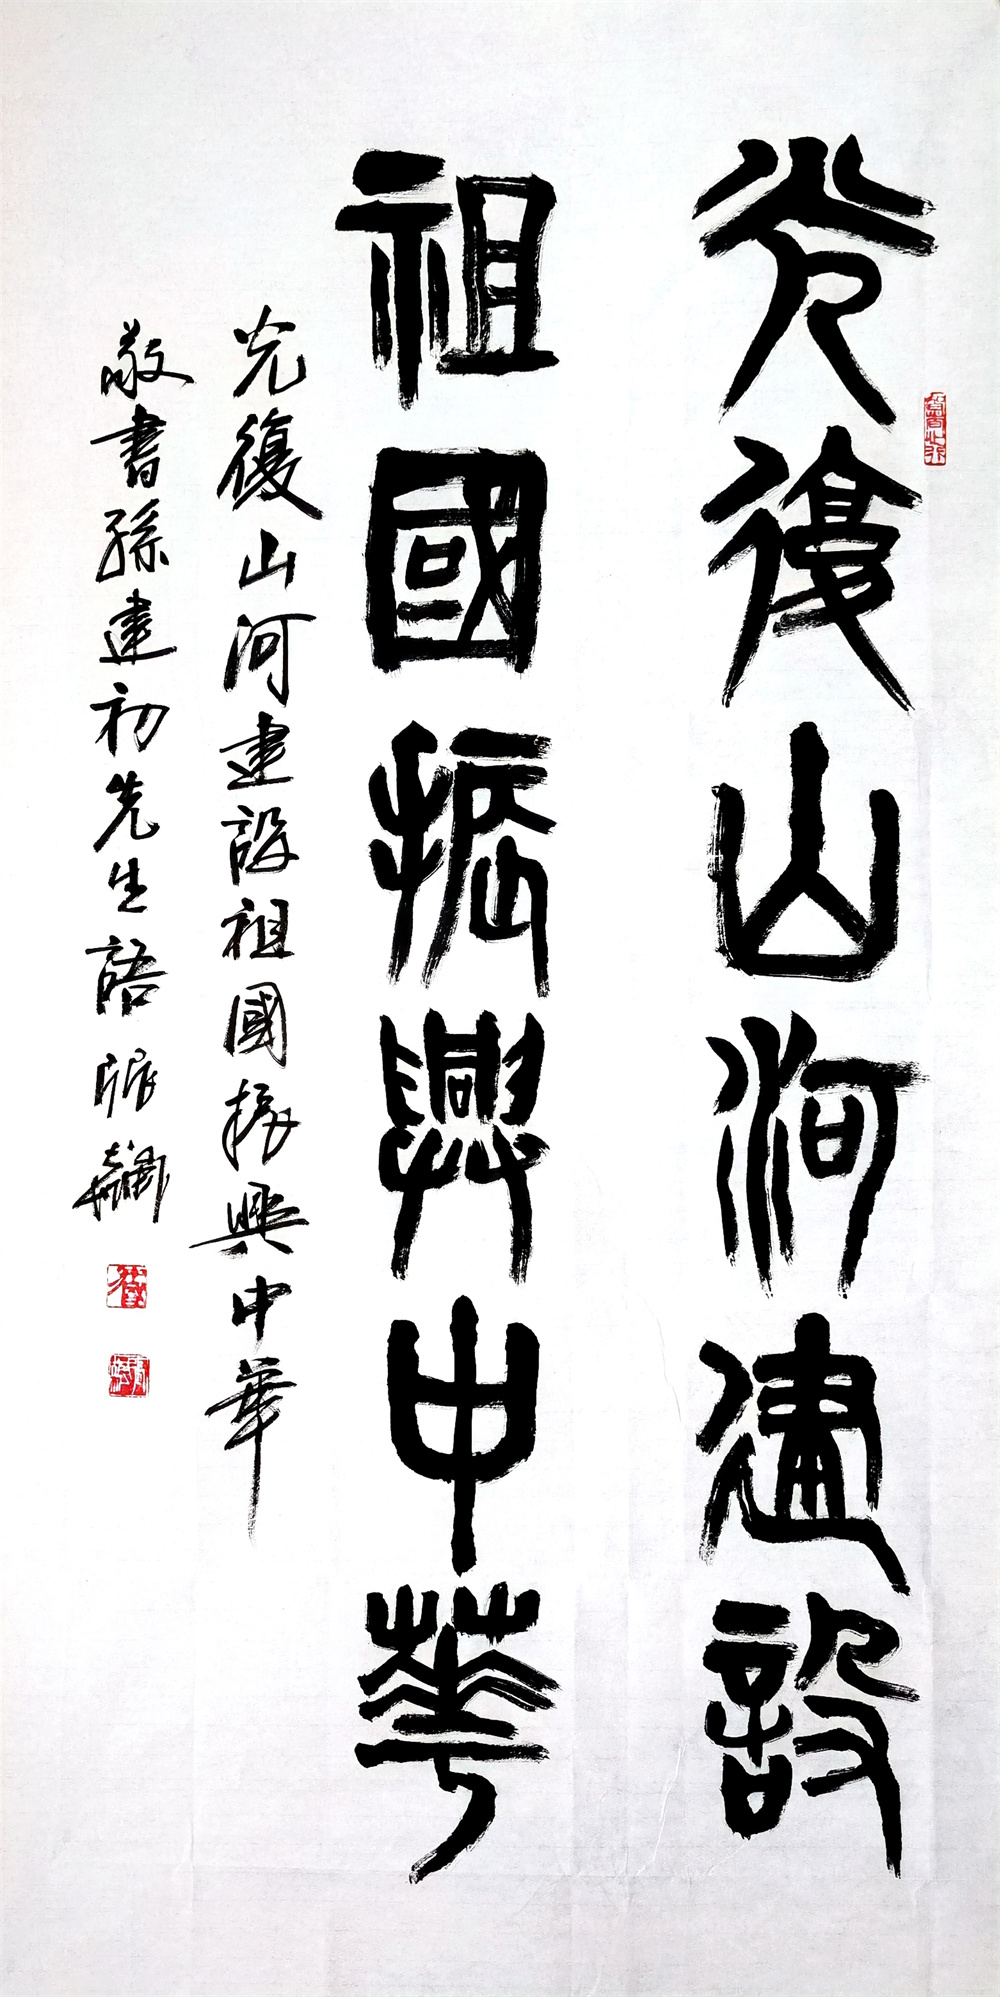 光復山河建設
祖國振興中華
光復山河建設祖國振興中華
敬書孫建初先生語